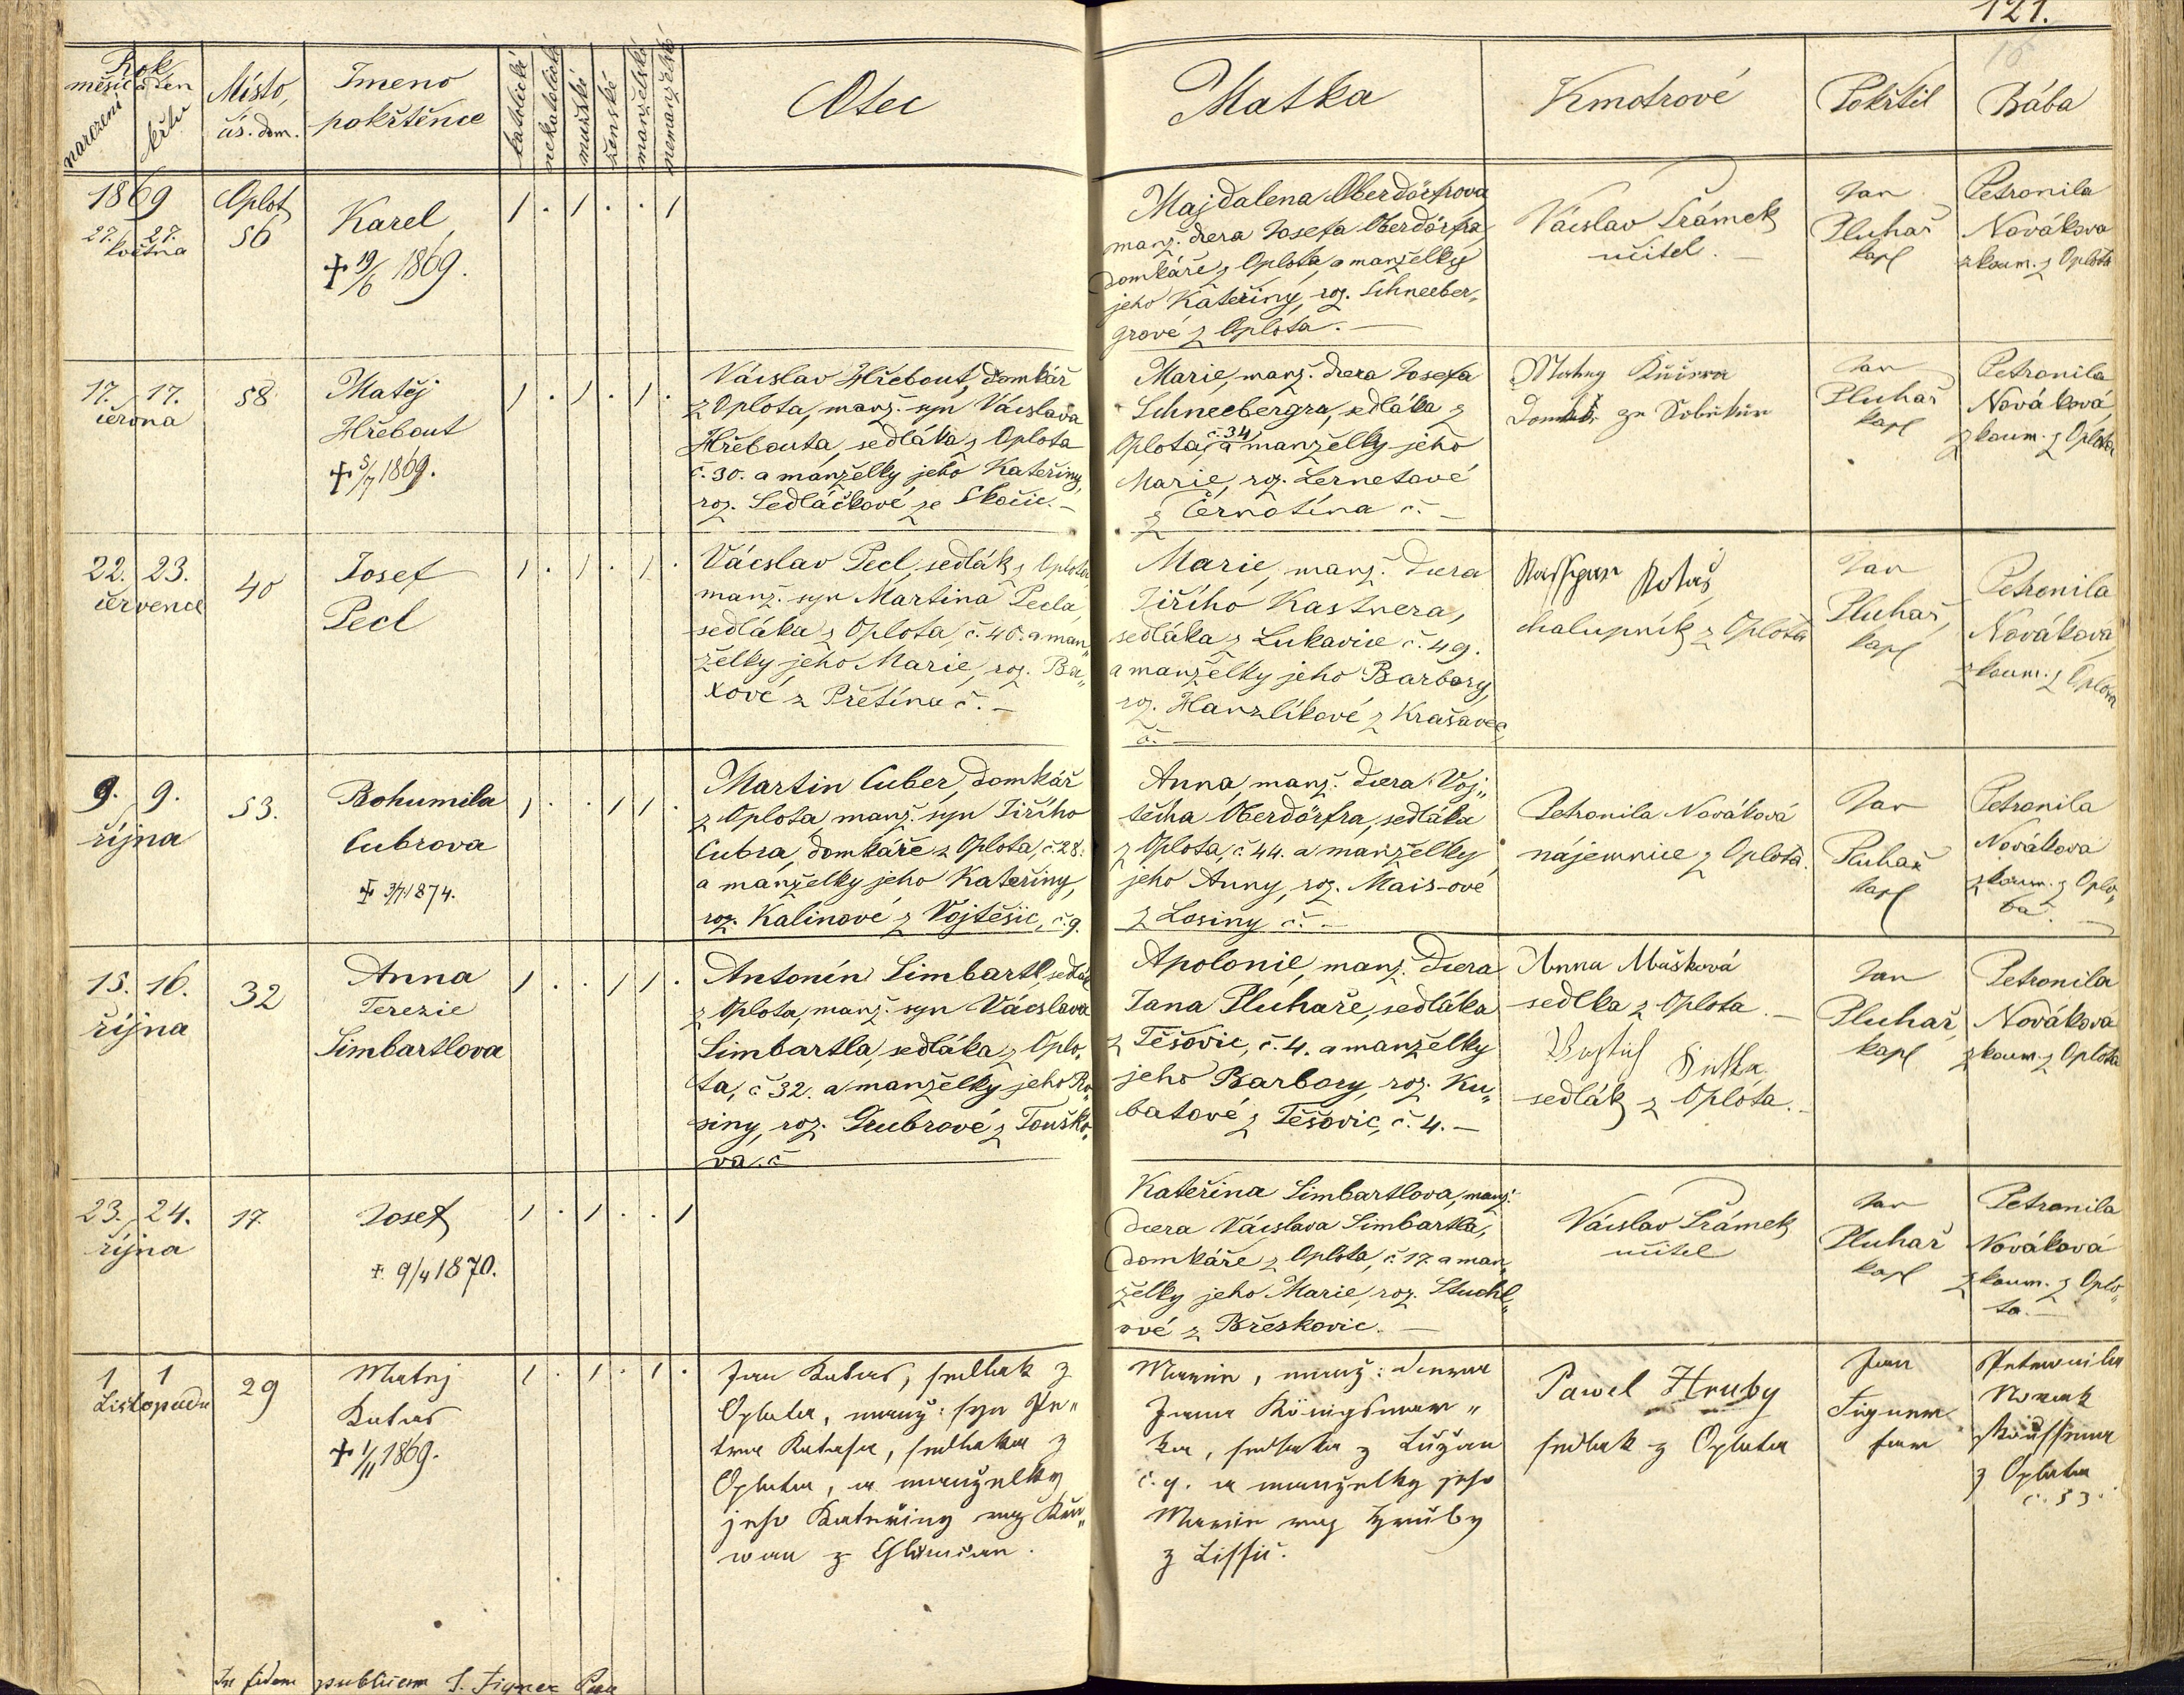 121.
16
Rok
měsíc a den
narození
křtu
Místo,
čís. dom.
Jmeno
pokřtěnce
katolické
nekatolické
mužské
ženské
manželské
nemanželské
Otec
Matka
Kmotrové
Pokřtil
Bába
1869
27. 27.
května
Oplot
56
Karel
+ 19/6 1869.
1 . 1 . . 1
Majdalena Oberdörfrova
manž. dcera Josefa Oberdörfra,
domkáře z Oplota, a manželky
jeho Kateřiny, roz. Schneeber„
grové z Oplota. —
Vácslav Šrámek
učitel. —
Jan
Pluhař
kapl
Petronila
Novákova
zkoum. z Oplota
17. 17.
června
58
Matěj
Hřebout
+ 5/7 1869.
1 . 1 . 1 .
Vácslav Hřebout, domkář
z Oplota, manž. syn Vácslava
Hřebouta, sedláka z Oplota
č. 30. a manželky jeho Kateřiny,
roz. Sedláčkové ze Skočic. —
Marie, manž. dcera Josefa
Schneebergra, sedláka z
Oplota, č. 34 a manželky jeho
Marie, roz. Lernetové
z Černotína č. —
Jan
Pluhař
kapl
Petronila
Nováková,
zkoum. z Oplota
22. 23.
července
40
Josef
Pecl
1 . 1 . 1 .
Vácslav Pecl, sedlák z Oplota,
manž. syn Martina Pecla,
sedláka z Oplota, č. 40. a man„
želky jeho Marie, roz. Ba„
xové z Přetína č. —
Marie, manž. dcera
Jiřího Kastnera,
sedláka z Lukavice č. 49.
a manželky jeho Barbory,
roz. Hanzlíkové z Krašavec
č. —
chalupník z Oplota
Jan
Pluhař,
kapl
Petronila
Novákova,
zkoum. z Oplota
9. 9.
října
53.
Bohumila
Cubrova
+ 3/7 1874.
1 . . 1 1 .
Martin Cuber, domkář
z Oplota, manž. syn Jiřího
Cubra, domkáře z Oplota, č. 28.
a manželky jeho Kateřiny,
roz. Kalinové z Vojtěšic, č. 9.
Anna, manž. dcera Voj„
těcha Oberdörfra, sedláka
z Oplota, č. 44. a manželky
jeho Anny, roz. Mais-ové
z Losiny č. —
Petronila Nováková
nájemnice z Oplota.
Jan
Pluhař
kapl
Petronila
Novákova
zkoum. z Oplo„
ta. —
15. 16.
října
32
Anna
Terezie
Simbartlova
1 . . 1 1 .
Antonín Simbartl, sedlák
z Oplota, manž. syn Vácslava
Simbartla, sedláka z Oplo„
ta, č 32. a manželky jeho Ro„
siny, roz. Grubrové z Touško„
va. č
Apolonie, manž. dcera
Jana Pluhaře, sedláka
z Těšovic, č. 4. a manželky
jeho Barbory, roz. Ku„
batové z Těšovic, č. 4. —
Anna Mašková
sedlka z Oplota. —
sedlák z Oplota. —
Jan
Pluhař,
kapl
Petronila
Nováková
zkoum. z Oplota
23. 24.
října
17.
Josef
+ 9/4 1870.
1 . 1 . . 1
Kateřina Simbartlova, manž.
dcera Vácslava Simbartla,
domkáře z Oplota, č. 17. a man„
želky jeho Marie, roz. Stuchl„
ové z Břeskovic. —
Vácslav Šrámek
učitel
Jan
Pluhař
kapl
Petronila
Nováková
zkoum. z Oplo„
ta. —
1 1
Listopadu
29
Matej
Kutas
+ 1/11 1869.
1 . 1 . 1 .
Jan Kutas, sedlak z
Oplota, manž: syn Pe„
tra Kutasa, sedlaka z
Oplota, a manželky
jeho Kateřiny roz
z
Marie, manž: dcera
Jana Königsmar„
ka, sedlaka z Lužan
č. 9. a manželky jeho
Marie roz Hruby
z Lissic.
Pawel Hruby
sedlak z Oplota
Jan
Figner
far
Petronila
Nowak
z Oplota
č. 53.
In fidem publicam J. Figner